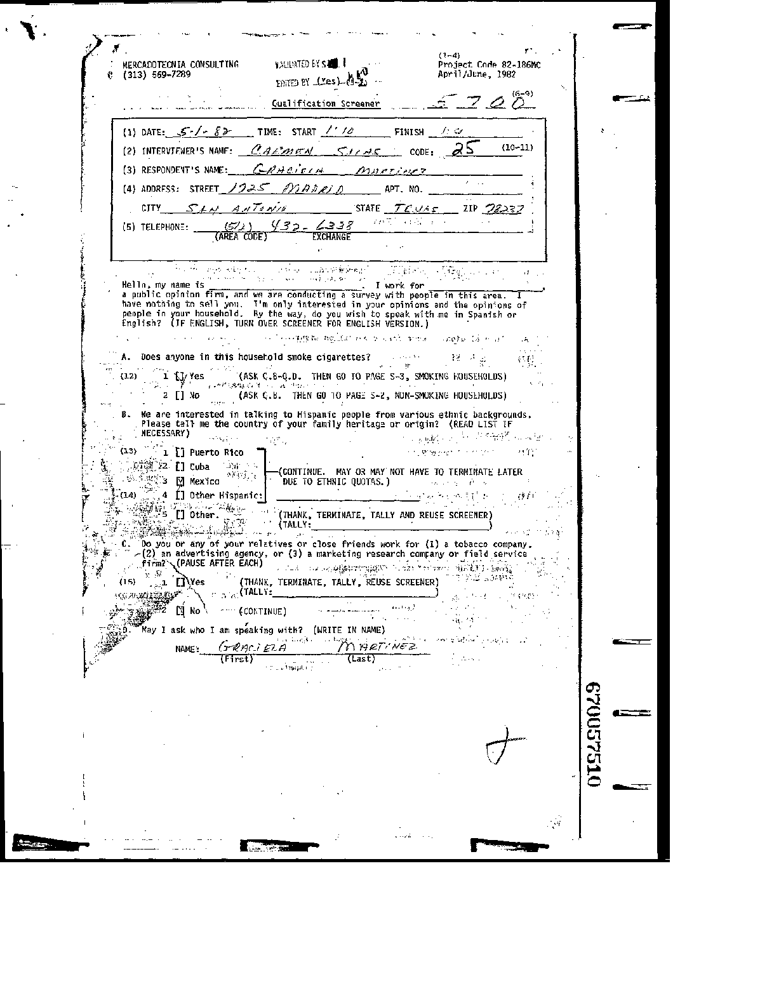 (1-4)
MERCADOTECNIA CONSULTING VALIDATED BY Project Code 82-186MC
(313) 569-7289 EDITED BY (Yes) April/June, 1982
(6-9)
Qualification Screener 5700
(1) DATE: 5-1-82 TIME: START 1:10 FINISH
(2) INTERVIEWER'S NAME: CARMEN CODE: 25 (10-11)
(3) RESPONDENT'S NAME: GRACIELA MARTINEZ
(4) ADDRESS: STREET 1725 MADRID APT. NO.
CITY SAN ANTONIO STATE TEXAS ZIP 78237
(5) TELEPHONE: (512) 432-6338
(AREA CODE) EXCHANGE
Hello, my name is . I work for
a public opinion firm, and we are conducting a survey with people in this area. I
have nothing to sell you. I'm only interested in your opinions and the opinions of
people in your household. By the way, do you wish to speak with me in Spanish or
English? (IF ENGLISH, TURN OVER SCREENER FOR ENGLISH VERSION.)
A. Does anyone in this household smoke cigarettes?
(12) 1 [] Yes (ASK Q.B-Q.D. THEN GO TO PAGE S-3, SMOKING HOUSEHOLDS)
2 [] No (ASK Q.B. THEN GO TO PAGE S-2, NON-SMOKING HOUSEHOLDS)
B. We are interested in talking to Hispanic people from various ethnic backgrounds.
Please tell me the country of your family heritage or origin? (READ LIST IF
NECESSARY)
(13) 1 [] Puerto Rico
2 [] Cuba (CONTINUE. MAY OR MAY NOT HAVE TO TERMINATE LATER
3 [X] Mexico DUE TO ETHNIC QUOTAS.)
(14) 4 [] Other Hispanic:
5 [] Other. (THANK, TERMINATE, TALLY AND REUSE SCREENER)
(TALLY: )
C. Do you or any of your relatives or close friends work for (1) a tobacco company.
(2) an advertising agency, or (3) a marketing research company or field service
firm? (PAUSE AFTER EACH)
(15) 1 [] Yes (THANK, TERMINATE, TALLY, REUSE SCREENER)
(TALLY: )
2 [X] No (CONTINUE)
D. May I ask who I am speaking with? (WRITE IN NAME)
NAME: GRACIELA MARTINEZ
(First) (Last)
670057510